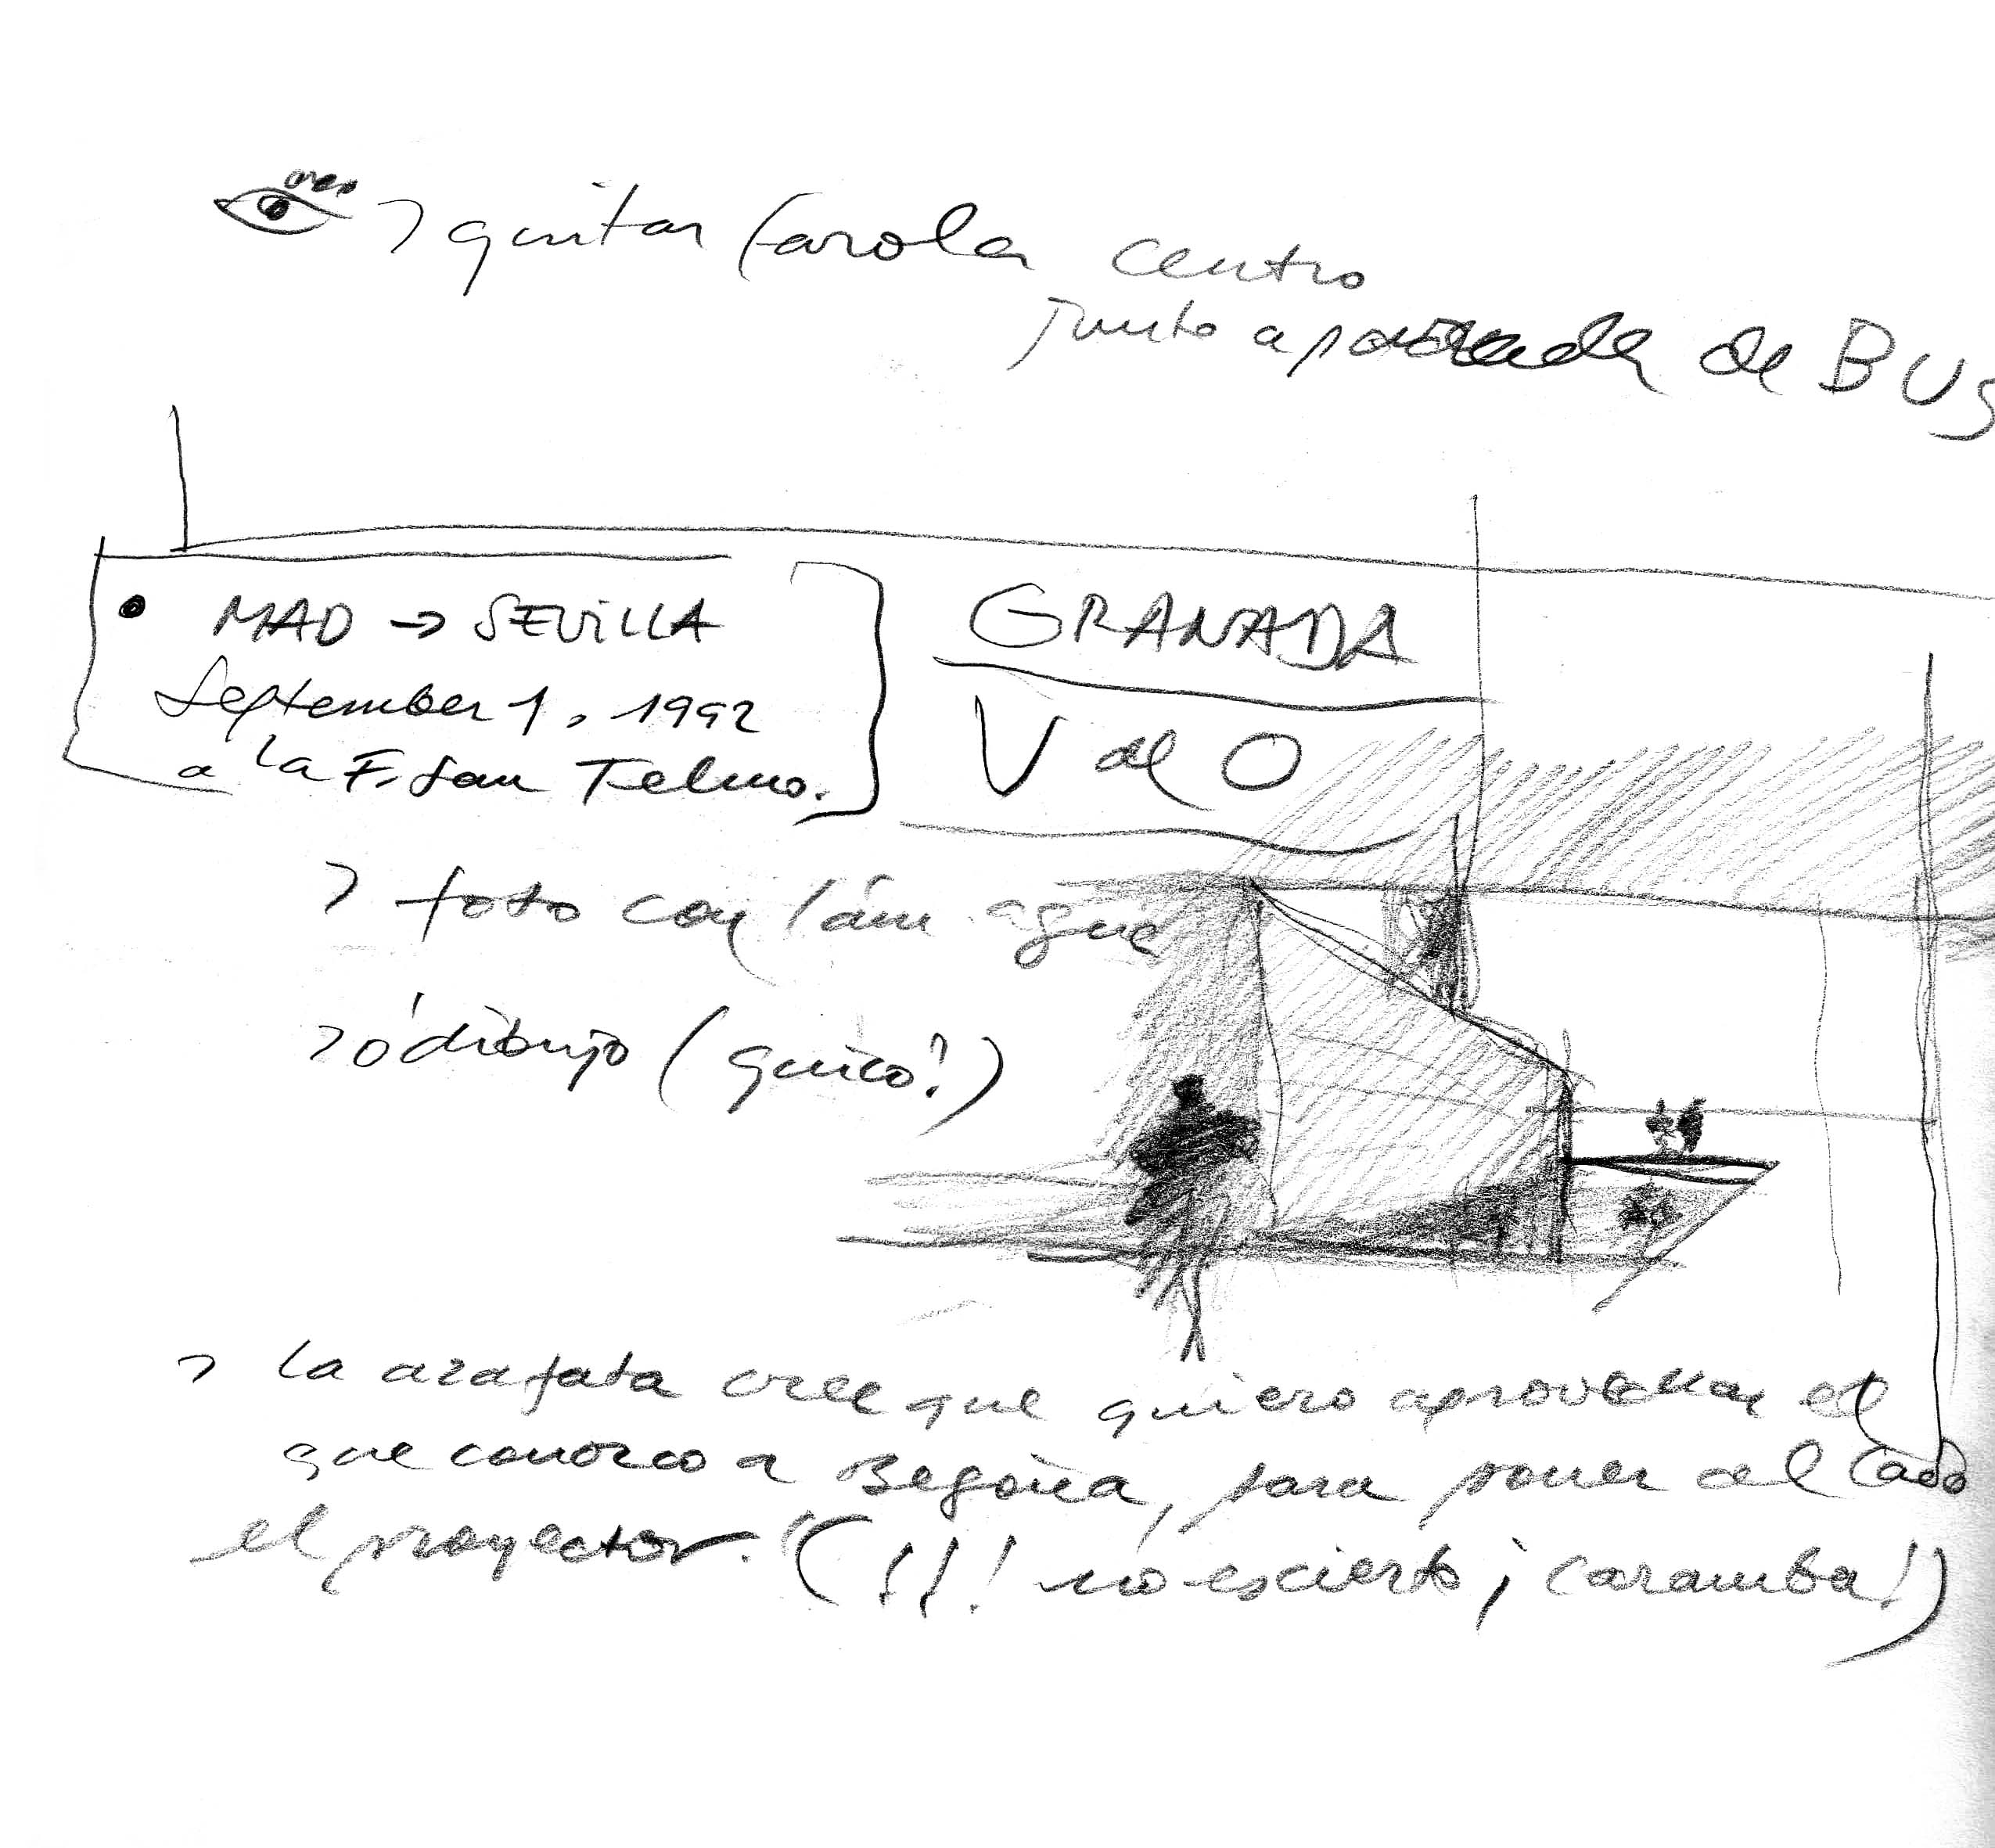 > quitar farola centro
junto a parada de BUS
• MAD → SEVILLA
September 1, 1992
a la F. San Telmo.
GRANADA
V del O
> foto con lám agua
> ó dibujo (quico?)
> la azafata cree que quiero aprovechar el
que conozco a Begoña, para poner al lado
el proyector." (!!! no es cierto ¡caramba!)